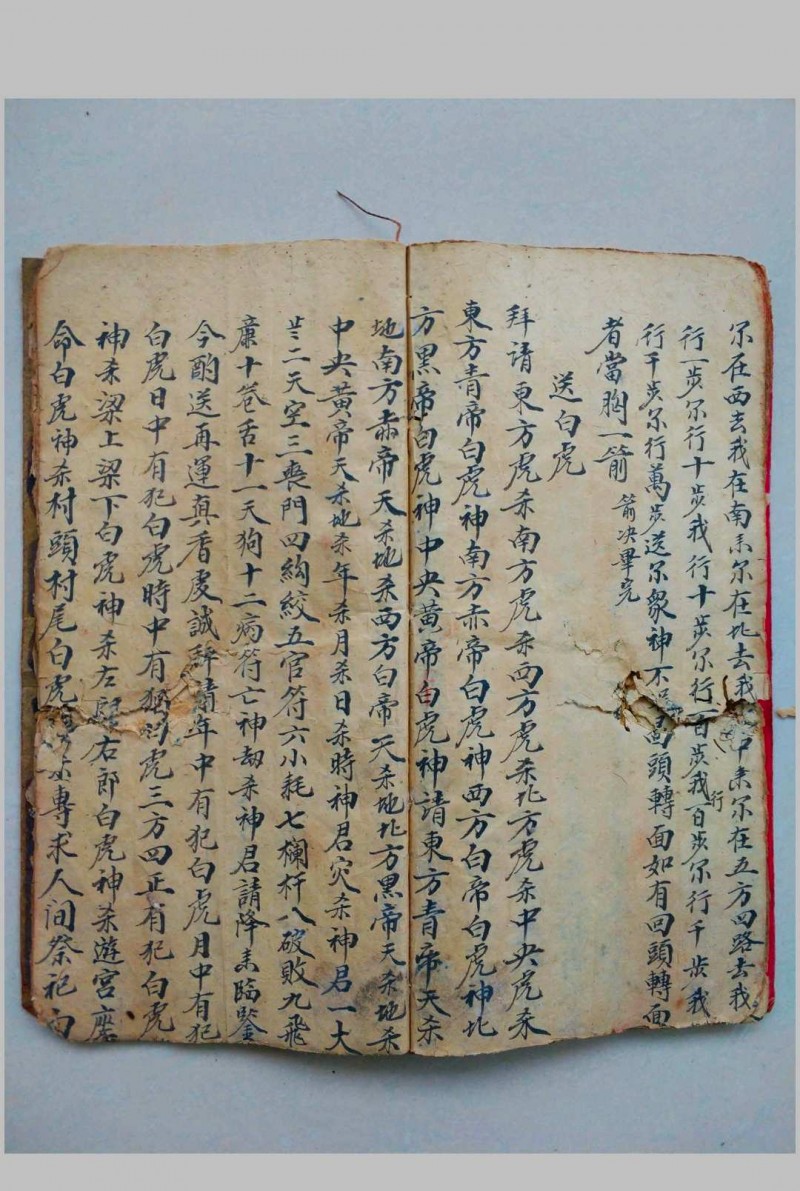 尔在西去我在南来尔在北去我中来尔在五方四路去我
行一步尔行十步我行十步尔行百步我行百步尔行千步我
行千步尔行萬步送尔衆神不回頭轉面如有回頭轉面
者當胸一箭 箭决畢完
送白虎
拜請東方虎杀南方虎杀西方虎杀北方虎杀中央虎杀
東方青帝白虎神南方赤帝白虎神西方白帝白虎神北
方黑帝白虎神中央黄帝白虎神請東方青帝天杀
地南方赤帝天杀地杀西方白帝天杀地北方黑帝天杀地杀
中央黄帝天杀地杀年杀月杀日杀時神君灾杀神君一大
二天空三喪門四絢絞五官符六小耗七欄杆八破敗九飛
廉十卷舌十一天狗十二病符亡神刼杀神君請降来臨鑒
今酌送再運真香虔誠辞請年中有犯白虎月中有犯
白虎日中有犯白虎時中有犯虎三方四正有犯白虎
神杀梁上梁下白虎神杀左右郎白虎神杀遊宫
命白虎神杀村頭村尾白虎専求人间祭祀白